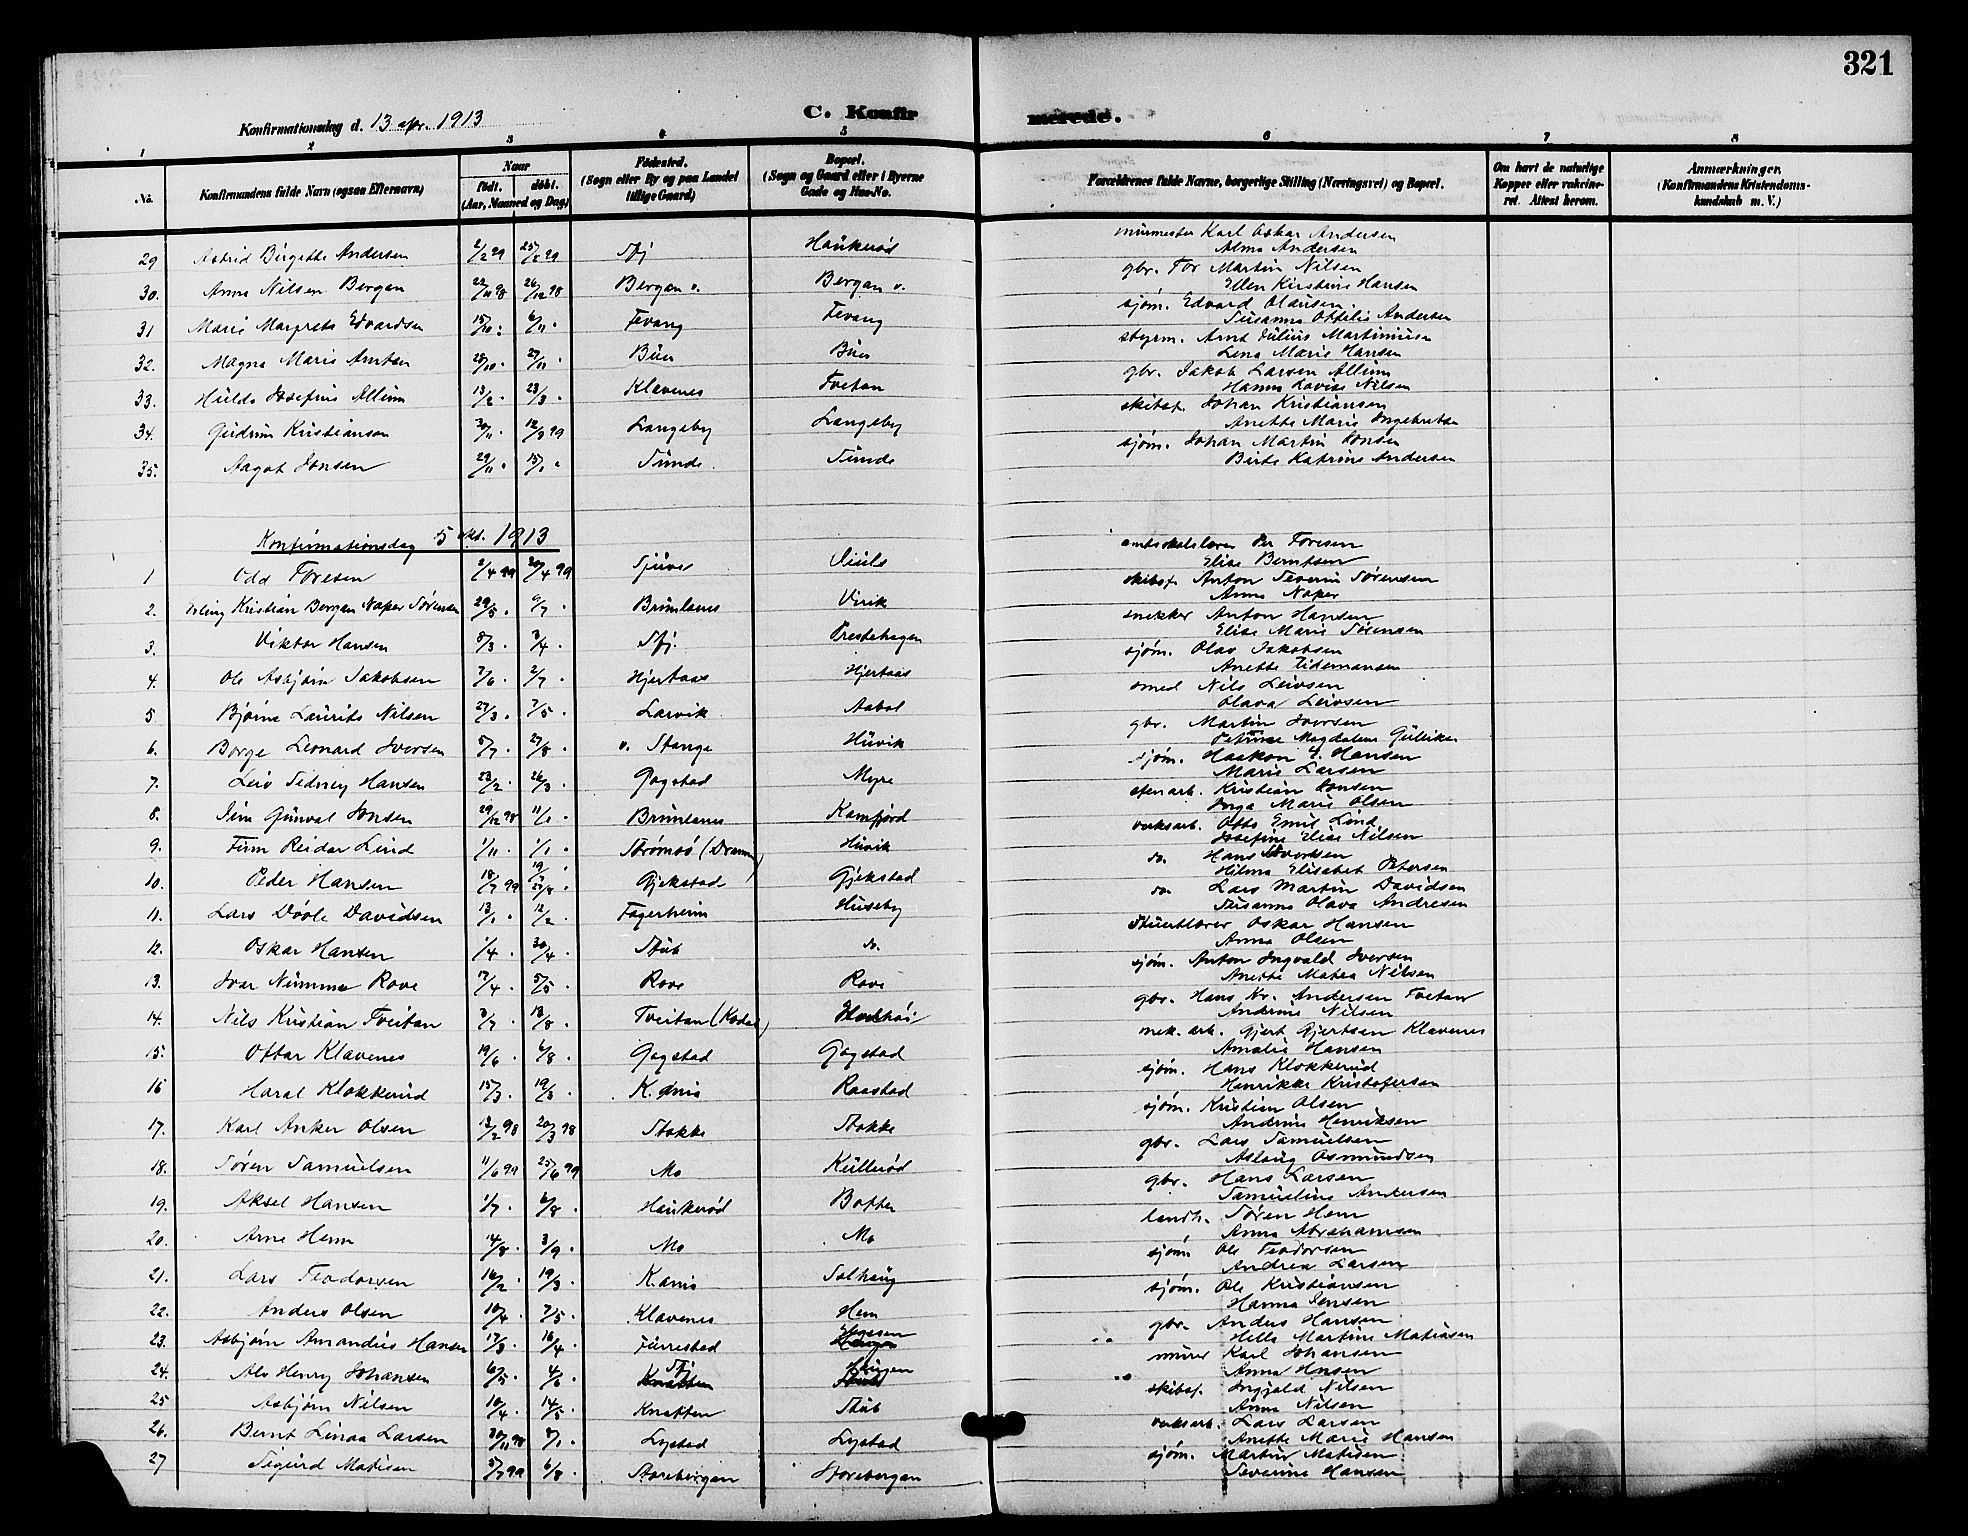 321
Konfirmationsdag d. 13 apr. 1913
C. Konfirmerede.
1 2 3 4 5 6 7 8
No. Konfirmandens fulde Navn (ogsaa Efternavn) Naar født. døbt. (Aar, Maaned og Dag) Fødested. (Sogn eller By og paa Landet tillige Gaard) Bopæl. (Sogn og Gaard eller i Byerne Gade og Hus-No. Forældrenes fulde Navne, borgerlige Stilling (Næringsvei) og Bopæl. Om havt de naturlige Kopper eller vakcineret. Attest herom. Anmærkninger. (Konfirmandens Kristendomskundskab m. V.)
29 Astrid Birgitte Andersen Sfj Haukerød murmester Karl Oskar Andersen
Alma Andersen
30. Anna Nilsen Bergan 22/11 98 26/12 98 Bergan v. Bergan v. gbr. Tor Martin Nilsen
Ellen Kirstine Hansen
31 Marie Margrete Edvardsen 15/10 . 6/11 . Fevang Fevang sjøm. Edvard Olausen
Susanne Ottilie Andersen
32. Magna Marie Arntsen 28/10 . 27/11 . Buer Buer styrm. Arnt Julius Martinius
Lena Marie Hansen
33. Hilda Josefine Allum 13/2 . 23/3 . Klavenes Tveitan gbr. Jakob Larsen Allum
Hanna Lovise Nilsen
34. Gudrun Kristiansen 30/11 . 12/3 99 Langeby Langeby skibsf. Johan Kristiansen
Anette Marie Ingebretsen
35. Aagot Jonsen 29/11 . 15/1 . Sunde Sunde sjøm. Johan Martin Jonsen
Birte Katrine Andersen
Konfirmationsdag 5 okt. 1913
1 Odd Foresen 2/4 99 30/4 99 amtskolelærer Per Foresen
Elise Berntsen
2. Erling Kristian Bergan Naper Sørensen 29/5 . 9/7 . Brunlanes Virik skibsf. Anton Severin Sørensen
Anna Naper
3. Viktor Hansen 8/3 . 3/4 . Sfj. Prestehagen snekker Anton Hansen
Elise Marie Sørensen
4. Ole Asbjørn Jakobsen 7/6 . 2/7 . Hjertaas Hjertaas sjøm. Olav Jakobsen
Anette Tidemansen
5. Bjarne Laurits Nilsen 27/3 . 7/5 . Larvik Aabol smed Nils Leivsen
Olava Leivsen
6. Borge Leonard Iversen 5/7 . 27/8 . v. Stange Huvik gbr. Martin Iversen
Petrine Magdalene Gulliksen
7. Leiv Sidney Hansen 23/2 . 26/3 . Gogstad Myre sjøm. Haakon G. Hansen
Marie Larsen
8. Jim Gunval Jonsen 29/12 98 11/1 . Brunlanes Kamfjord stenarb. Kristian Jonsen
Inga Marie Olsen
9. Finn Reidar Lind 1/11 . 1/1 . Strømsø (Dramm) Huvik verksarb. Otto Emil Lind
Josefine Elise Nilsen
10. Peder Hansen 18/7 99 27/8 . Gjekstad Gjekstad do. Hans Sivertsen
Hilma Elisabet Petersen
11. Lars Døøle Davidsen 13/1 . 12/2 . Fagerheim Huseby do Lars Martin Davidsen
Susanne Olava Andresen
12. Oskar Hansen 1/4 . 30/4 . Stub do. Stuertlærer Oskar Hansen
Anna Olsen
13. Ivar Numme Rove 17/4 . 5/5 . Rove Rove sjøm. Anton Ingvald Iversen
Anette Matea Nilsen
14. Nils Kristian Tveitan 3/7 . 13/8 . Tveitan (Kodal) gbr. Hans Kr. Andersen Tveitan
Andrine Nilsen
15. Ottar Klavenes 19/6 . 6/8 . Gogstad Gogstad mek. arb. Gjert Gjertsen Klavenes
Amalie Hansen
16 Haral Klokkerud 15/3 . Raastad sjøm. Hans Klokkerud
Henrikke Kristofersen
17. Karl Anker Olsen 13/2 98 20/3 98 Stokke Stokke sjøm. Kristian Olsen
Andrine Henriksen
18. Søren Samuelsen 11/6 99 25/6 99 Mo Kullerød gbr. Lars Samuelsen
Aslaug Osmundsen
19. Aksel Hansen 1/7 . 6/8 . Haukerød Botten gbr. Hans Larsen
Samueline Andersen
20. Arne Hem 14/8 . 3/9 . Mo Mo landh. Søren Hem
Anna Abrahamsen
21. Lars Teodorsen 16/2 . 19/3 . K.ania Solhaug sjøm Ole Teodorsen
Andrea Larsen
22. Anders Olsen 10/4 . 7/5 . Klavenes Hem sjøm. Ole Kristiansen
Hanna Jensen
23. Asbjørn Amandus Hansen 17/3 . 16/4 . Furrestad gbr. Anders Hansen
Hella Martine Matiasen
24. Alv Henry Johansen 6/5 . 4/6 . Sfj Knatten Haugen murer Karl Johansen
Anna Hansen
25 Asbjørn Nilsen 10/4 . 14/5 . Knatten Stub skibsf. Ingjald Nilsen
Anna Nilsen
26. Bernt Linaa Larsen 30/11 98 8/1 . Lystad Lystad verksarb. Lars Larsen
Anette Marie Hansen
27 Sigurd Matisen 5/7 99 6/8 . Storebergan Storebergan sjøm. Martin Matisen
Severine Hansen